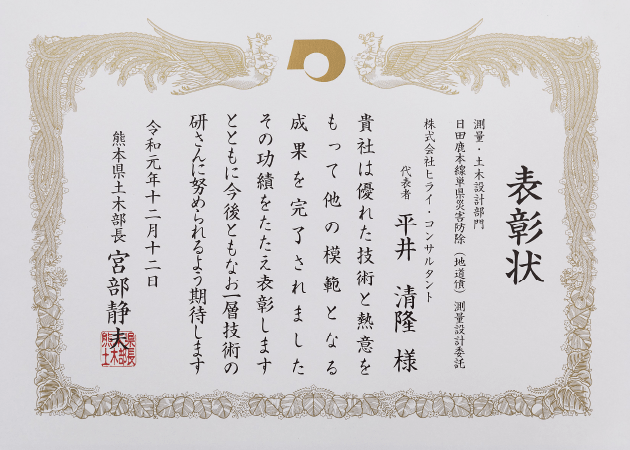 表彰状
測量・土木設計部門
日田鹿本線単県災害防除（地道債）測量設計委託
株式会社ヒライ・コンサルタント
代表者 平井 清隆 様
貴社は優れた技術と熱意を
もって他の模範となる
成果を完了されました
その功績をたたえ表彰します
とともに今後ともなお一層技術の
研さんに努められるよう期待します
令和元年十二月十二日
熊本県土木部長 宮部静夫
熊本県土木部長